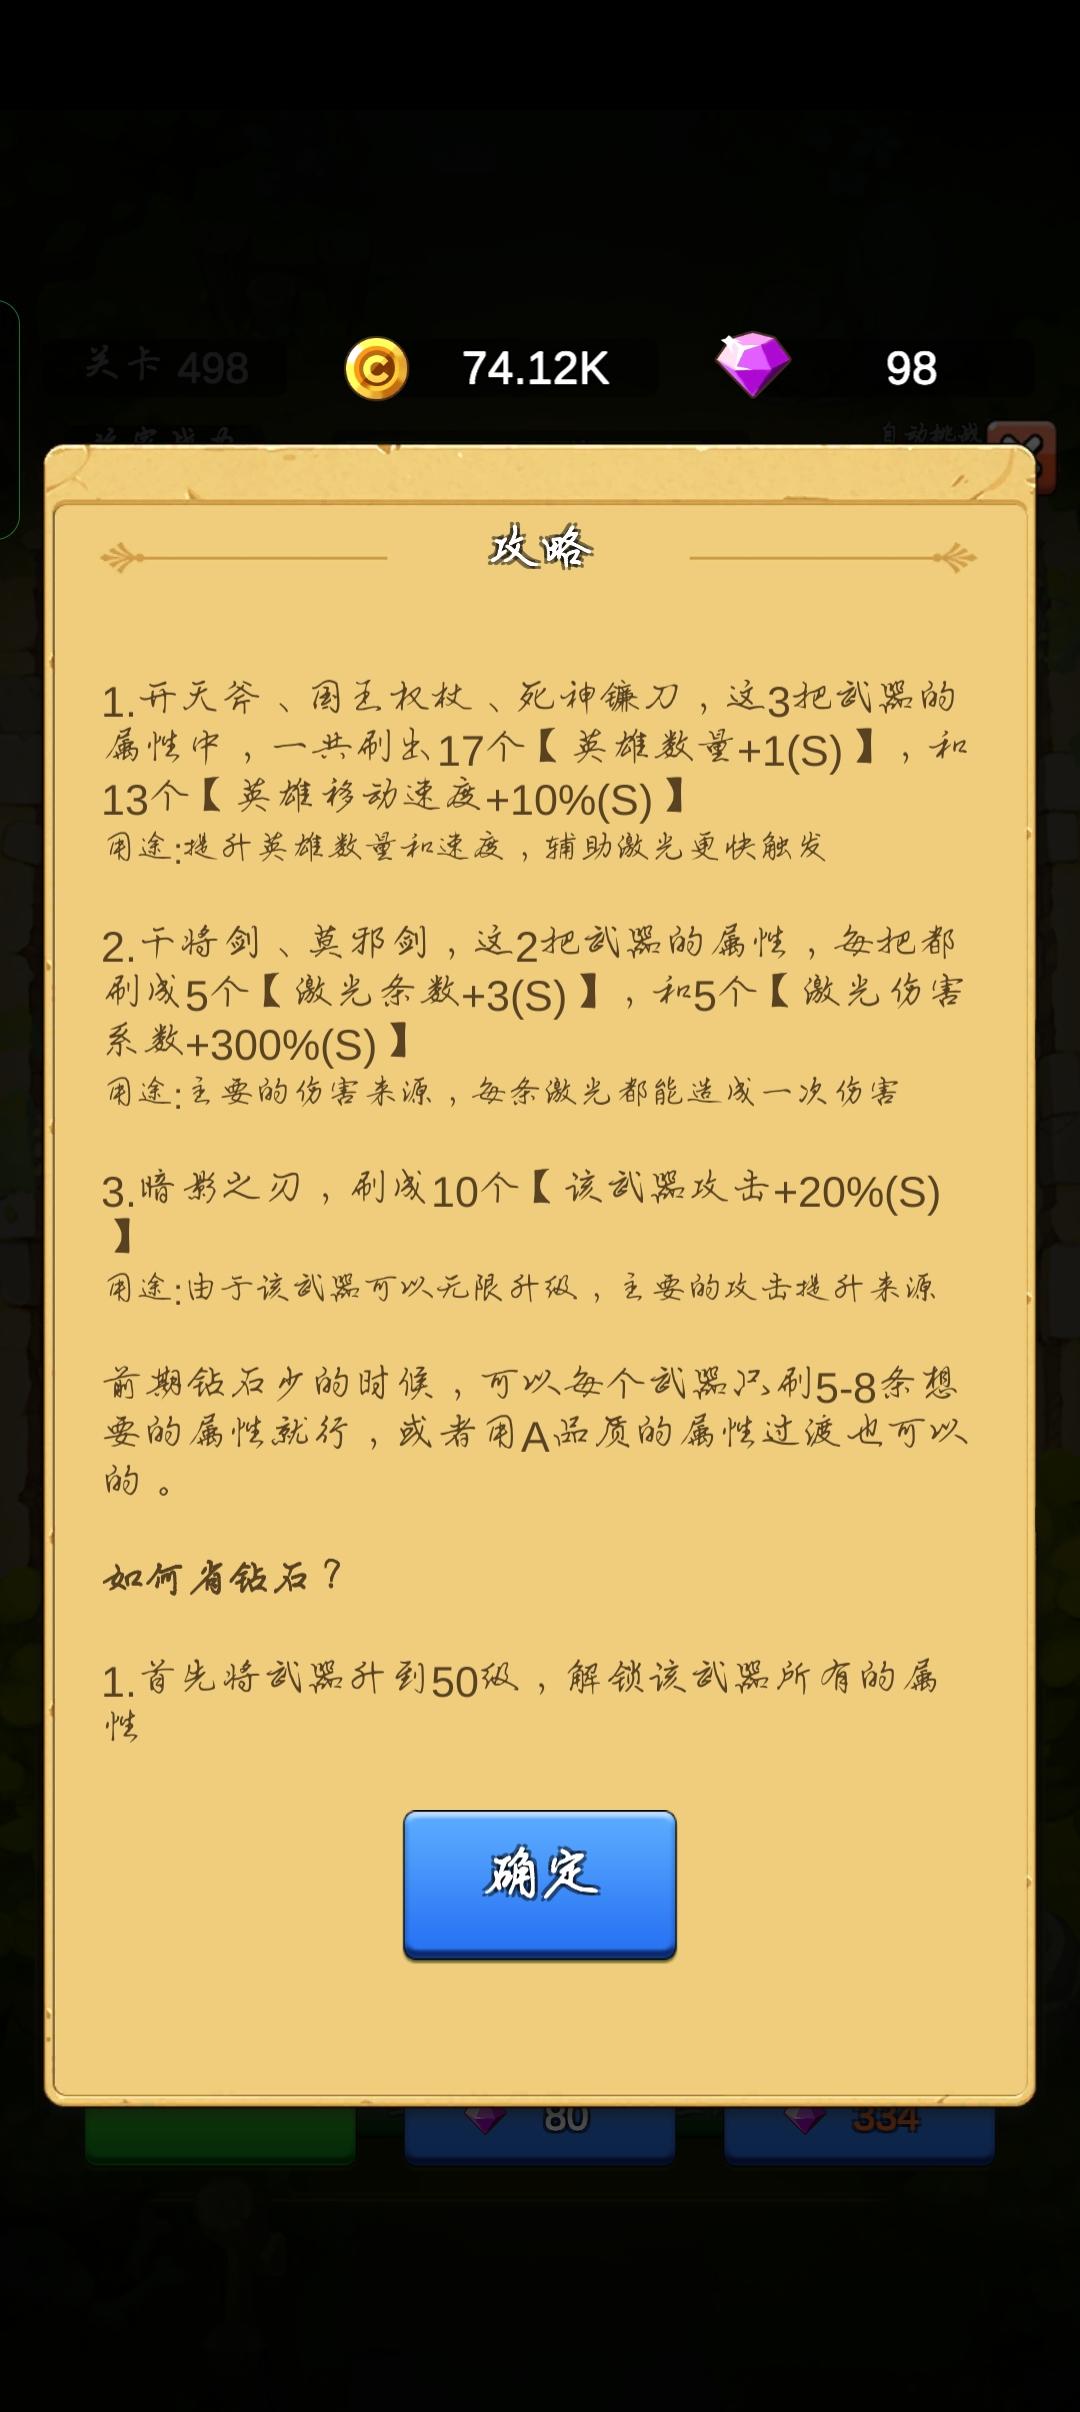 关卡 498
74.12K
98
自动挑战
攻略
1.开天斧、国王权杖、死神镰刀，这3把武器的
属性中，一共刷出17个【英雄数量+1(S)】，和
13个【英雄移动速度+10%(S)】
用途:提升英雄数量和速度，辅助激光更快触发
2.干将剑、莫邪剑，这2把武器的属性，每把都
刷成5个【激光条数+3(S)】，和5个【激光伤害
系数+300%(S)】
用途:主要的伤害来源，每条激光都能造成一次伤害
3.暗影之刃，刷成10个【该武器攻击+20%(S)
】
用途:由于该武器可以无限升级，主要的攻击提升来源
前期钻石少的时候，可以每个武器只刷5-8条想
要的属性就行，或者用A品质的属性过渡也可以
的。
如何省钻石？
1.首先将武器升到50级，解锁该武器所有的属
性
确定
80
334